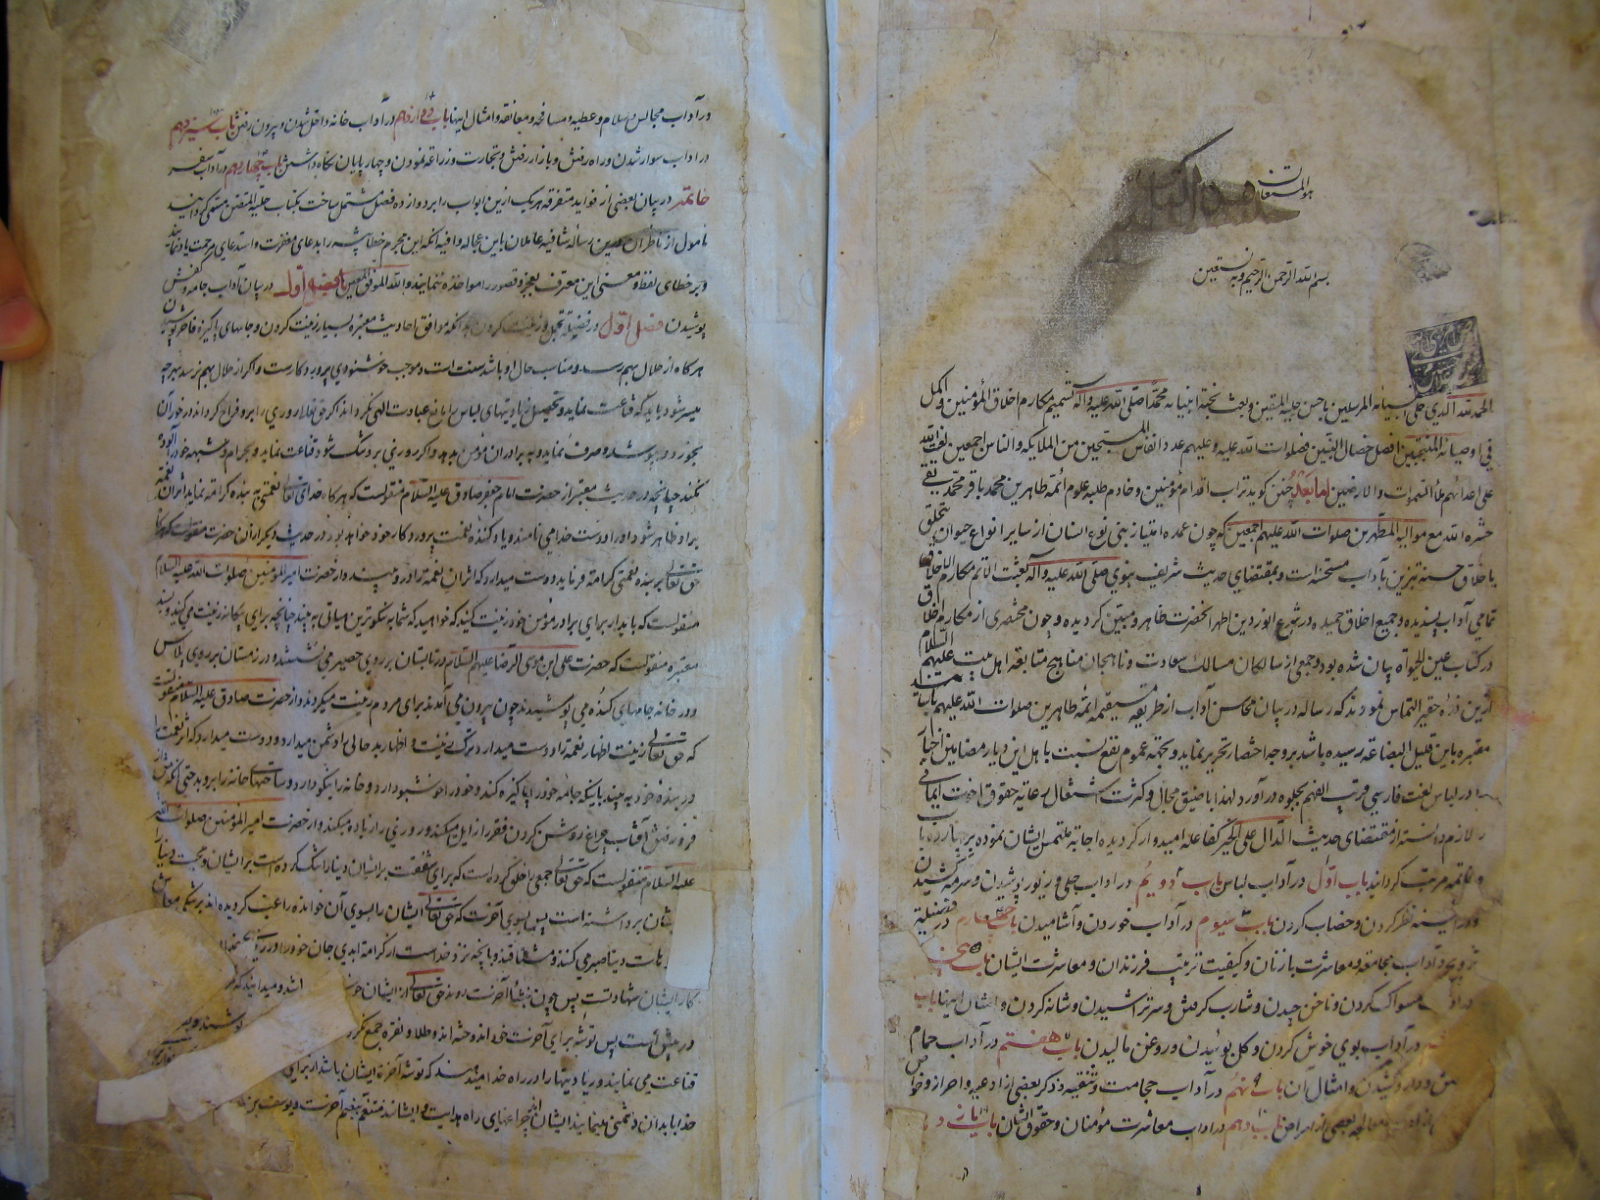 هو المستعان
بسم الله الرحمن الرحیم و به نستعین
الحمد لله الذی حلی انبیائه المرسلین باحسن حلیة المتقین و بعث نخبة انبیائه محمدا صلی الله علیه وآله لتتمیم مکارم اخلاق المؤمنین و اکمل
فی اوصیائه المنتجبین افضل خصال النبیین فصلوات الله علیه و علیهم عدد انفاس المسبحین من الملایکه والناس اجمعین و لعنة الله
علی اعدائهم ملأ السموات والارضین اما بعد چنین گوید تراب اقدام مؤمنین و خادم طلبه علوم ائمه طاهرین محمد باقر بن محمد تقی
حشره الله مع موالیه المطهرین صلوات الله علیهم اجمعین که چون عمده امتیاز بنی نوع انسان از سایر انواع حیوان تخلق
باخلاق حسنه و تزین بآداب مستحسنه است و بمقتضای حدیث شریف نبوی صلی الله علیه وآله بعثت لاتمم مکارم الاخلاق
تمامی آداب پسندیده و جمیع اخلاق حمیده در شرع انور دین اطهر آنحضرت ظاهر و مبین گردیده و چون مختصری از مکارم اخلاق
در کتاب عین الحیواة بیان شده بود و جمعی از سالکان مسالک سعادت و ناهجان مناهج متابعة اهل بیت علیهم السلام
ازین ذره حقیر التماس نمودند که رساله در بیان محاسن آداب از طریقه مستقیمه ائمه طاهرین صلوات الله علیهم
معتبره باین قلیل البضاعه رسیده باشد بر وجه اختصار تحریر نماید و بجهة عموم نفع نسبت باهل این دیار مضامین اخبار
را در لباس لغت فارسی قریب الفهم بجلوه درآورد لهذا با ضیق مجال و کثرت اشتغال رعایة حقوق اخوت ایمانی
لازم دانسته از مقتضای حدیث الدال علی الخیر کفاعله امیدوار گردیده اجابة ملتمس ایشان نموده بر چهارده باب
و خاتمه مرتب گردانید باب اول در آداب لباس باب دویم در آداب حلی و زیور پوشیدن و سرمه کشیدن
و در آینه نظر کردن و خضاب کردن باب سیوم در آداب خوردن و آشامیدن باب چهارم در فضیلة
تزویج و آداب مجامعة و معاشرت با زنان و کیفیت تربیت فرزندان و معاشرت ایشان باب پنجم
در آداب مسواک کردن و ناخن چیدن و شارب گرفتن و سر تراشیدن و شانه کردن و امثال اینها باب
در آداب بوی خوش کردن و گل بوئیدن و روغن مالیدن باب هفتم در آداب حمام
و امثال آن باب نهم در آداب حجامت و تنقیه و ذکر بعضی از ادعیه و احراز و خواص
معالجه بعضی از امراض باب دهم در آداب معاشرت مؤمنان و حقوق ایشان باب یازد
در آداب مجالس و سلام و عطیه و مصافحه و معانقه و امثال اینها باب دوازدهم در آداب خانه داخل شدن و بیرون رفتن باب سیزدهم
در آداب سوار شدن و راه رفتن و بازار رفتن و تجارت و زراعة نمودن و چهارپایان نگاه داشتن باب چهاردهم در آداب سفر
خاتمه در بیان بعضی از فواید متفرقه هر یک ازین ابواب را بر دوازده فصل مشتمل ساخت بکتاب حلیة المتقین مسمی گردانید
مامول از ناظران درین رساله شافیه و عاملان باین عجاله وافیه آنکه این مجرم خطا پیشه را بدعای مغفرت و استدعای مرحمت یاد نمایند
و بر خطای لفظ و معنی این معترف بعجز و قصور را مواخذه ننمایند و الله الموفق المعین باب اول در بیان آداب جامه و کفش
پوشیدن فصل اول در فضیلة تجمل و زینت کردن بدانکه موافق احادیث معتبره بسیار زینت کردن و جامهای پاکیزه فاخر پوشیدن
هر گاه از حلال بهم رسد و مناسب حال او باشد سنت است و موجب خوشنودی پروردگار است و اگر از حلال بهم نرسد بهر چه
میسر شود باید که قناعت نماید و تحصیل زیادتیهای لباس را مانع عبادت الهی نگرداند و اگر حق تعالی روزی را بر او فراخ گرداند در خور آن
بخورد و بپوشد و صرف نماید و به برادران مؤمن بدهد و اگر روزی بر او تنک شود قناعت نماید و بحرام و شبهه خود را آلوده
نکند چنانچه در حدیث معتبر از حضرت امام جعفر صادق علیه السلام منقولست که هر گاه خدای تعالی نعمتی به بنده کرامة نماید و اثر آن نعمة
بر او ظاهر شود او را دوست خدا می نامند و یاد کننده نعمت پروردگار خود خواهد بود و در حدیث دیگر از آن حضرت منقولست که هر گاه
حق تعالی بر بنده نعمتی کرامة فرماید دوست میدارد که اثر آن نعمة را در او به بیند و از حضرت امیر المؤمنین صلوات الله علیه السلام
منقولست که باید از برای برادر مؤمن خود زینت کنید که خواهید که شما به نیکوترین هیأتی به بیند چنانچه برای بیگانه زینت می کنید و بسند
معتبره منقولست که حضرت علی ابن موسی الرضا علیهم السلام در تابستان بر روی حصیر می نشستند و در زمستان بر روی پلاس
و در خانه جامهای کنده می پوشیدند و چون بیرون می آمدند برای مردم زینت میکردند و از حضرت صادق علیه السلام منقولست
که حق تعالی زینت و اظهار نعمة را دوست میدارد و ترک زینت و اظهار بد حالی را دشمن میدارد و دوست میدارد که اثر نعمت
در بنده خود به بیند باینکه جامه خود را پاکیزه کند و خود را خوشبو دارد و خانه را نیکو دارد و ساحتهای خانه را بروبد حتی آنکه
فرو رفتن آفتاب چراغ روشن کردن فقر را زایل میکند و روزی را زیاده میکند و از حضرت امیر المؤمنین صلوات الله
علیه السلام منقولست که حق تعالی جمعی را خلق کرده است که برای شفقت بر ایشان دنیا را تنک کرده است بر ایشان و محبت دنیا
شان برداشته است پس بسوی آخرت که حق تعالی ایشان را بسوی آن خوانده راغب گردیده اند و بر تنگی معاش
هات دنیا صبر می کنند و مشتاقند بآنچه نزد خداست از کرامة ابدی و جان خود را در رضای خدا
کار ایشان شهادتست پس چون بنشأ آخرت روند حق تعالی از ایشان خوشنود باشد و میدانند که مرگ
در پیش است پس توشه برای آخرت خود برداشته اند و طلا و نقره جمع نکرد
قناعت می نمایند و زیادیها را در راه خدا میدهند که توشه آخرة ایشان باشد از برای
خدا بابدان دشمنی مینمایند ایشان چراغهای راه هدایت و ایشانند متنعم بنعیم آخرت